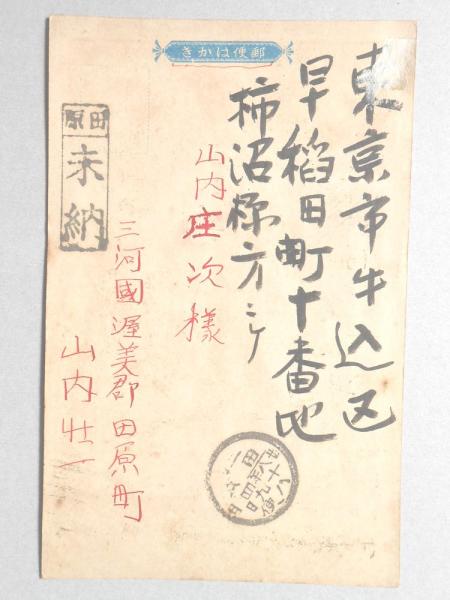 郵便はかき
東京市牛込区
早稲田町十番地
柿沼様方ニテ
山内庄次様
三河國渥美郡田原町
山内壮一
田原
未納